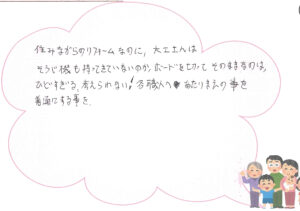 住みながらのリフォームなのに、大工さんは
そうじ機も持ってきていないのか、ボードを切って そのままなのは、
ひどすぎる、考えられない! 各職人へ あたりまえの事を
普通にする事を